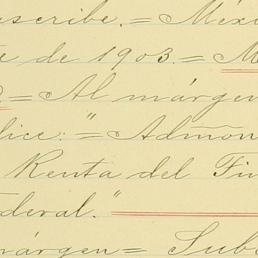 uscribe.= Méxi
te de 1903.= M
= Al márgen
dice: "= Admón
Renta del Ti
ederal."
márgen= Sub